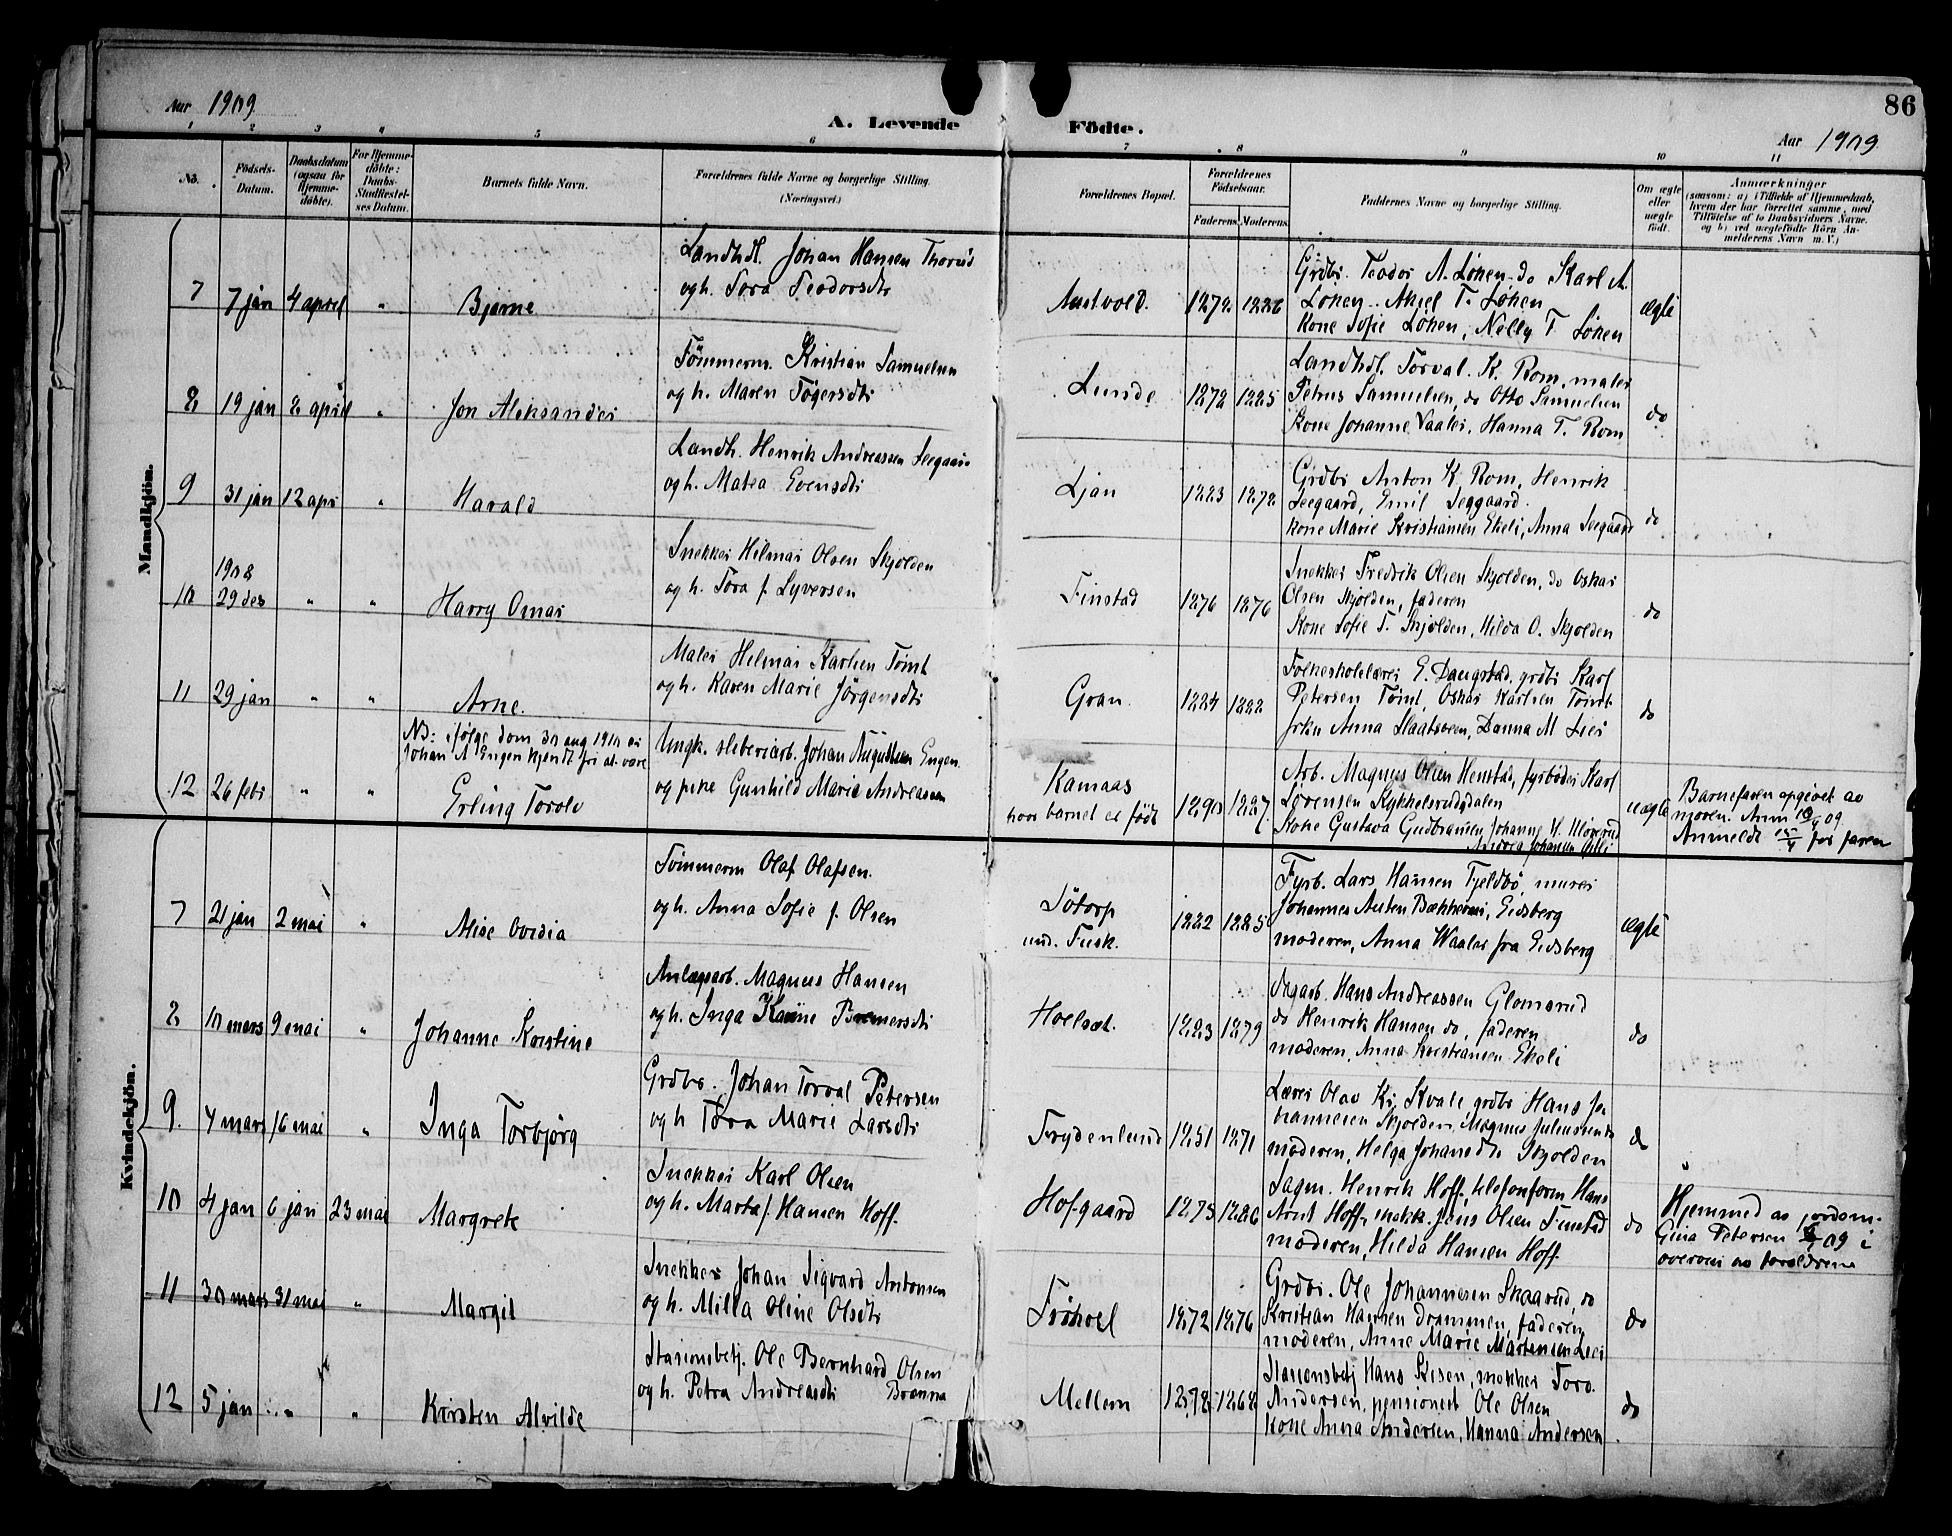 Aar 1909
A. Levende Fødte.
86
Aar 1909
1 2 3 4 5 6 7 8 9 10 11
No.
Födsels-
Datum.
Daabsdatum
(ogsaa for
Hjemme-
döbte).
For Hjemme-
döbte:
Daabs-
Stadfæstel-
ses Datum.
Barnets fulde Navn.
Forældrenes fulde Navne og borgerlige Stilling.
(Næringsvei.)
Forældrenes Bopæl.
Forældrenes
Födselsaar.
Faderens Moderens
Faddernes Navne og borgerlige Stilling.
Om ægte
eller
uægte
födt.
Anmærkninger
(saasom: a) i Tilfælde af Hjemmedaab,
hvem der har forrettet samme, med
Tilföielse af to Daabsvidners Navne.
og b) ved uægtefödte Börn An-
melderens Navn m. V.)
Mandkjön.
7 7 jan 4 april " Bjarne
Landhdl. Johan Hansen Thorud
og h. Tora Teodorsdtr
Austvold. 1872 1886
Grdbr. Teodor A. Løken do Karl A.
Løken. Aksel T. Løken
Kone Sofie Løken, Nelly T. Løken
ægte
8 19 jan 8 april " Jon Aleksander
Tømmerm. Kristian Samuelsen
og h. Maren Tøgersdtr
Lunde 1878 1885
Landhdl. Torval. K. Rom, maler
Petrus Samuelsen, do Otto Samuelsen
Kone Johanne Vaaler, Hanna T. Rom
do
9 31 jan 12 apr " Harald
Landh. Henrik Andreassen Seegaard
og h. Matea Evensdtr
Ljan 1883 1878
Grdbr Anton K. Rom, Henrik
Seegaard, Emil Seggaard.
Kone Marie Kristiansen Ekeli, Anna Seegaard
do
1908
10 29 des " " Harry Omar
Snekker Hilmar Olsen Skjolden
og h. Tora f. Syversen
Finstad 1876 1876
Snekker Fredrik Olsen Skjolden, do Oskar
Olsen Skjolden, faderen
Kone Sofie T. Skjolden, Hilda O. Skjolden
do
11 29 jan " " Arne.
Maler Hilmar Karlsen Tømt
og h. Karen Marie Jørgensdtr
Gran. 1884 1882
Folkeskolelærer E. Daugstad, grdbr Karl
Petersen Tømt, Oskar Karlsen Tømt
frkn Anna Slaatsveen, Danna M Lier
do
NB: ifølge dom 30 aug 1910 er
Johan A Engen kjendt fri at være
12 26 febr " " Erling Torolv
Ungk. sliberiarb. Johan Augustsen Engen
og pike Gunhild Marie Andreassen
Kamaas
hvor barnet er født
1890 1887.
Arb. Magnus Olsen Henstad, fyrbøder Karl
Sørensen Kykkelsrudsdalen
Kone Gustava Gudbransen, Johanne
uægte
Barnefaren opgivet av
moren. Anm 09
Anmeldt for faren
Kvindekjön.
7 21 jan 2 mai " Alise Ovidia
Tømmerm Olaf Olafsen.
og h. Anna Sofie f. Olsen
Søtorp
und. Fusk.
1882 1885
Fyrb. Lars Hansen Fjeldbo, murer
Johannes Austen Eidsberg
moderen, Anna Waaler fra Eidsberg
ægte
8 10 mars 9 mai " Johanne Kristine
Anlægsarb. Magnus Hansen
og h. Inga Karine Bremersdtr
Hoelsæt. 1883 1879
Sagarb. Hans Andreassen Glomsrud
do Henrik Hansen do, faderen
moderen, Anna Kristiansen Ekeli
do
9. 4 mars 16 mai " Inga Torbjørg
Grdbr. Johan Torval Petersen
og h Tora Marie Larsdtr
Frydenlund 1851 1871
Lærer Olav Kr. Kvale, grdbr Hans Jo-
hannesen Skjolden, Magnus
moderen, Helga Johansdtr Skjolden
do
10 4 jan 6 jan 23 mai Margrete
Snekker Karl Olsen
og h. Marta f. Hansen Hoff.
Hofgaard 1873 1886
Sagm. Henrik Hoff, telefonform Hans
Arnt Hoff, snekk. Jens Olsen Finstad
moderen, Hilda Hansen Hoff.
do
"
Hjemmed av jordm.
Gina Petersen 09 i
overvær av foreldrene
11 30 mars 31 mai " Margit
Snekker Johan Sigvard Antonsen
og h. Milla Oline Olsdtr
Frøhoel 1872 1876
Grdbr. Ole Johannesen Skaarud, do
Kristian Hansen Drammen, faderen,
moderen, Anne Marie Martensen Lier
do
12 5 jan " " Kirsten Alvilde
Stasionsbetj. Ole Bernhard Olsen
og h. Petra Andreasdtr Brenna
Mellem 1878 1868
Stasionsbetj Hans Olsen, snekker Tore
Andersen, pensionert Ole Olsen
Kone Anna Andersen, Hanna Andersen.
do